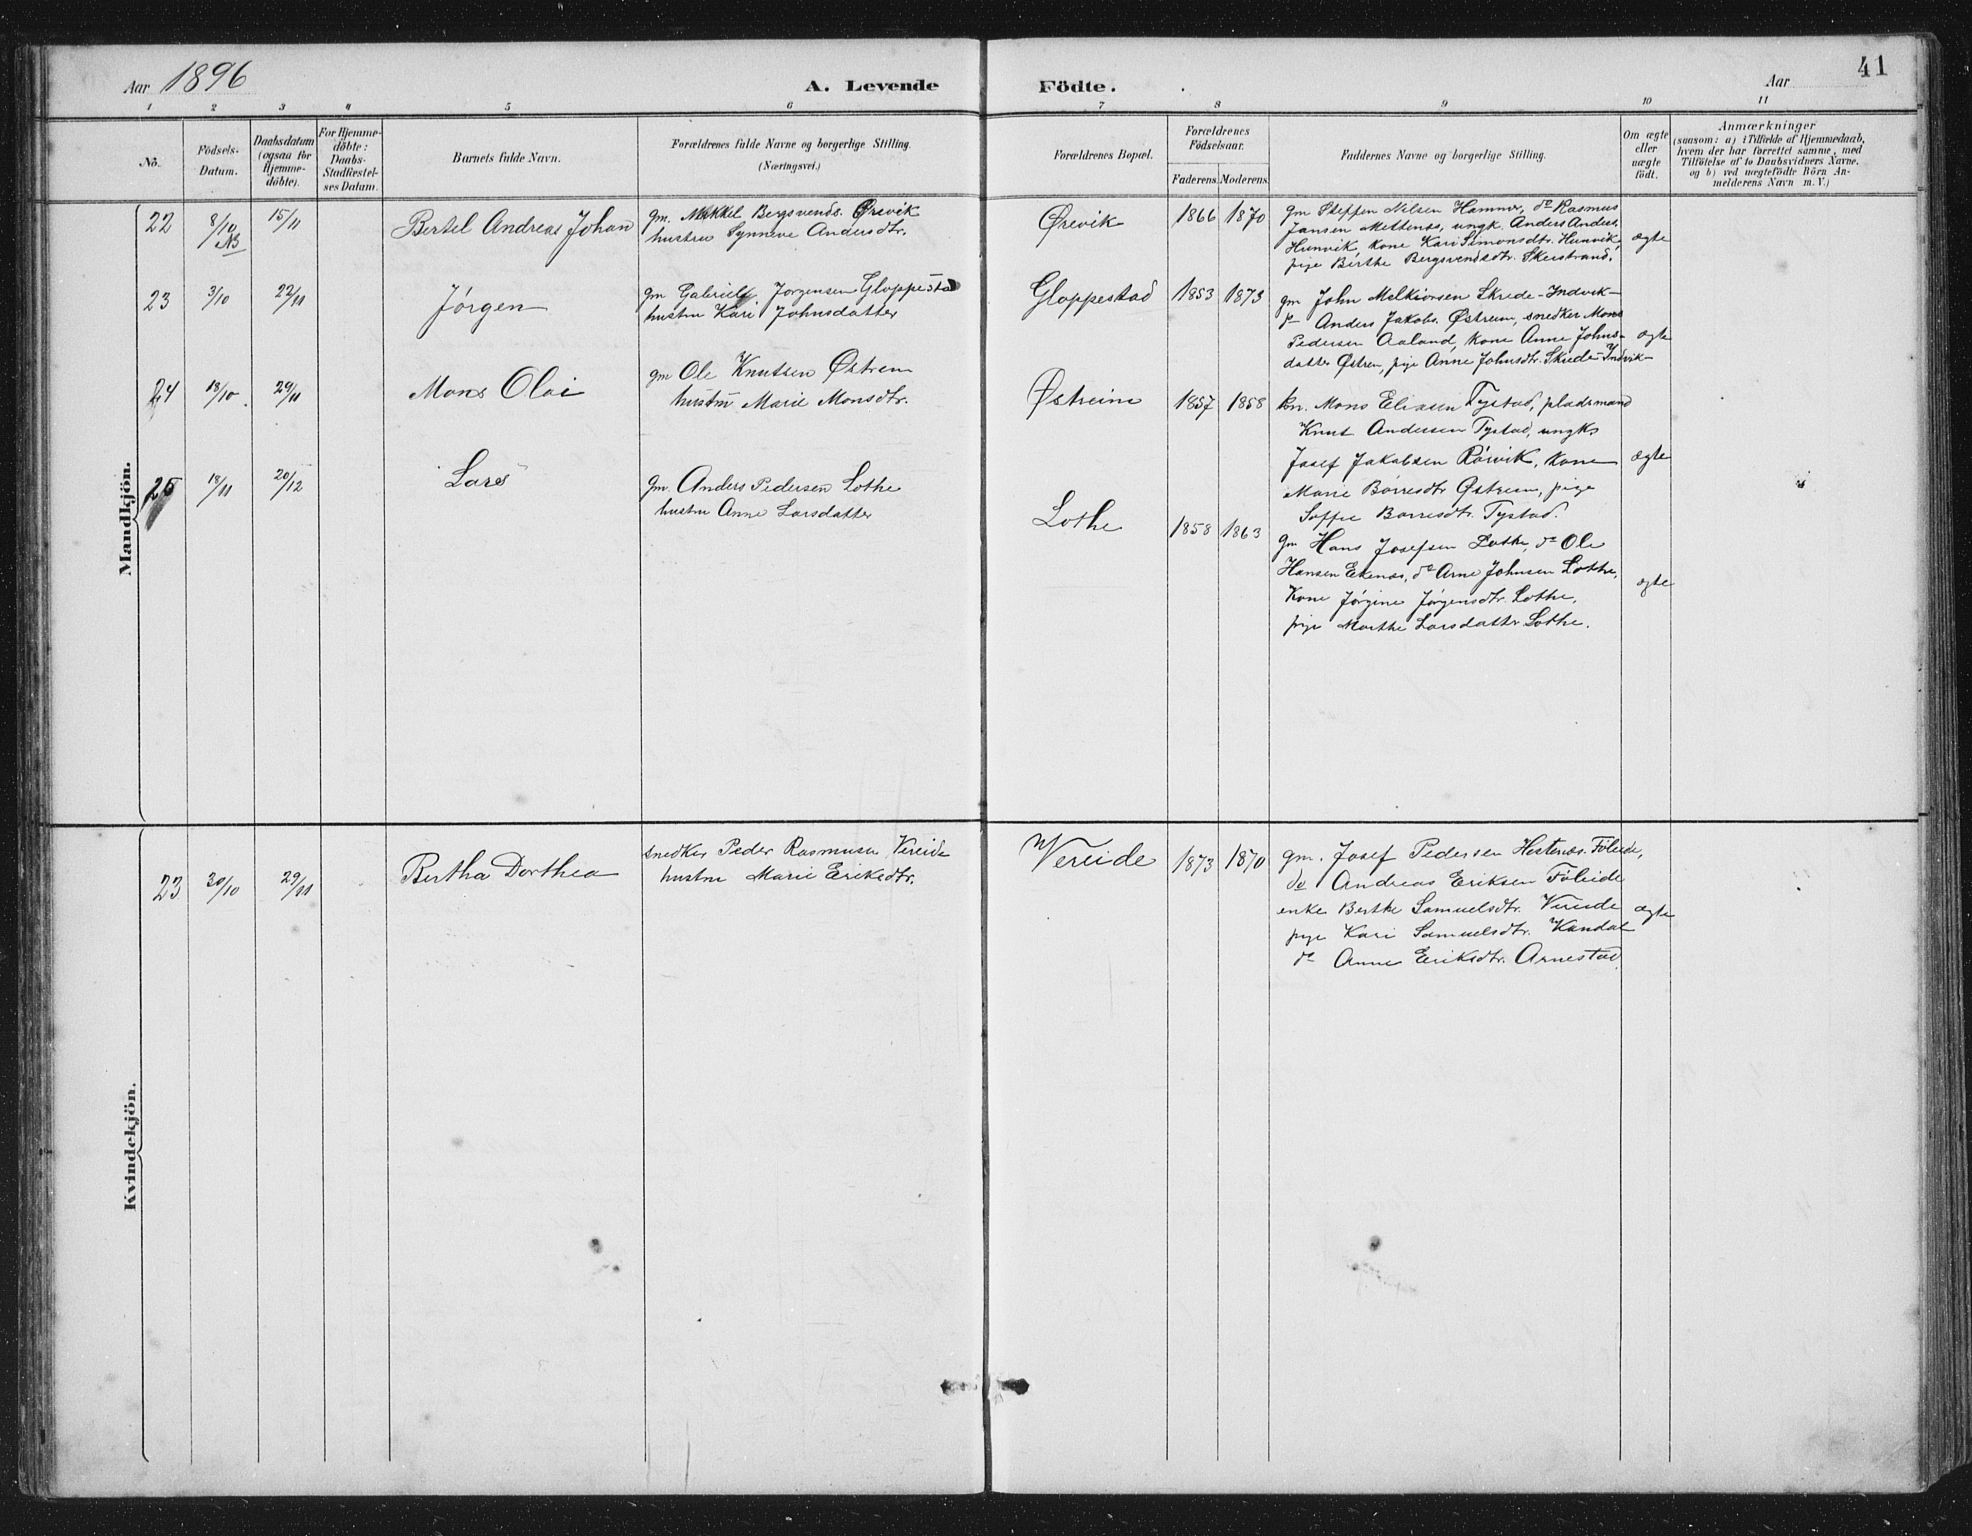 Aar 1896
A. Levende
Födte.
Aar
41
1 2 3 4 5 6 7 8 9 10 11
No.
Födsels-
Datum.
Daabsdatum
(ogsaa for
Hjemme-
döbte).
For Hjemme-
döbte:
Daabs-
Stadfæstel-
ses Datum.
Barnets fulde Navn.
Forældrenes fulde Navne og borgerlige Stilling.
(Næringsvei.)
Forældrenes Bopæl.
Forældrenes
Födselsaar.
Faderens. Moderens.
Faddernes Navne og borgerlige Stilling.
Om ægte
eller
uægte
födt.
Anmærkninger
(saasom: a) i Tilfælde af Hjemmedaab,
hvem der har forrettet samme, med
Tilföielse af to Daabsvidners Navne.
og b) ved uægtefödte Börn An-
melderens Navn m. V.)
Mandkjön.
22 8/10 15/11 Bertel Andreas Johan
NB
gm. Mikkel Bergsvends. Ørevik
hustru Synneve Andersdtr.
Ørevik 1866 1870
gm Steffen Nilsen Hamner, do Rasmus
Jansen Mettenæs, ungk. Anders Anders.
Hunvik, kone Kari Simonsdtr. Hunvik,
pige Birthe Bergsvendsdtr. Skeistrand.
ægte
23 3/10 22/11 Jórgen
gm Gabriel Jorgensen Gloppestad
hustru Kari Johnsdatter
Gloppestad 1853 1873
gm John Melkiorsen Skrede-Indvik
do Anders Jakobs. Østreim, snedker Mons
Pedersen Aaland, kone Anne Johns-
datter Østren, pige Anne Johnsdtr. Skrede-Indvik
ægte
24 18/10. 29/11 Mons Olai
gm Ole Knutsen Østrem
hustru Marie Monsdtr.
Østreim 1857 1858
kn. Mons Eliasen Tystad, pladsmand
Knut Andersen Tystad, ungk.
Josef Jakobsen Rórvik, kone
Marie Bórresdtr Østreim, pige
Soffie Borresdtr. Tystad.
ægte
25 18/11 20/12 Lars
gm. Anders Pedersen Lothe
hustru Anne Larsdatter
Lothe 1858 1863
gm Hans Josefsen Lothe, do Ole
Hansen Ekenæs, do Arne Johnsen Lothe,
Kone Jórgine Jórgensdtr. Lothe,
pige Marthe Larsdatter Lothe.
ægte
Kvindekjön.
23 30/10 29/11 Bertha Dorthea
snedker Peder Rasmusen Vereide
hustru Marie Eriksdtr.
Vereide 1873 1870
gm. Josef Pedersen Hestenæs. Fóleide,
do Andreas Eriksen Fóleide
enke Berthe Samuelsdtr. Vereide
pige Kari Samuelsdtr. Kandal
do Anne Eriksdtr. Arnestad.
ægte